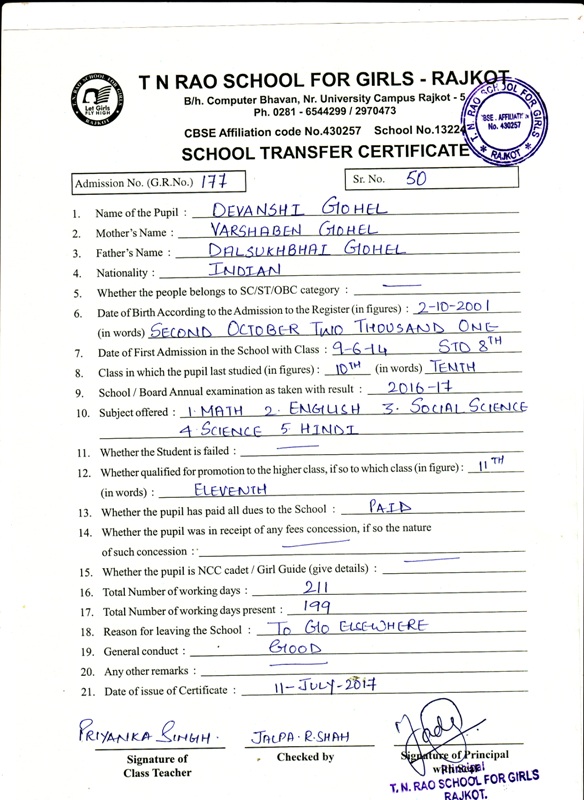 T. N. RAO SCHOOL FOR GIRLS
Let Girls
FLY HIGH
RAJKOT
T N RAO SCHOOL FOR GIRLS - RAJKOT
B/h. Computer Bhavan, Nr. University Campus Rajkot - 5
Ph. 0281 - 6544299 / 2970473
CBSE Affiliation code No.430257 School No.13224
SCHOOL TRANSFER CERTIFICATE
T. N. RAO SCHOOL FOR GIRLS
CBSE. AFFILIATION
No. 430257
RAJKOT
Admission No. (G.R.No.) 177 Sr. No. 50
1. Name of the Pupil : DEVANSHI GOHEL
2. Mother's Name : VARSHABEN GOHEL
3. Father's Name : DALSUKHBHAI GOHEL
4. Nationality : INDIAN
5. Whether the people belongs to SC/ST/OBC category : —
6. Date of Birth According to the Admission to the Register (in figures) : 2-10-2001
(in words) SECOND OCTOBER TWO THOUSAND ONE
7. Date of First Admission in the School with Class : 9-6-14 STD 8TH
8. Class in which the pupil last studied (in figures) : 10TH (in words) TENTH
9. School / Board Annual examination as taken with result : 2016-17
10. Subject offered : 1. MATH 2. ENGLISH 3. SOCIAL SCIENCE
4. SCIENCE 5 HINDI
11. Whether the Student is failed : —
12. Whether qualified for promotion to the higher class, if so to which class (in figure) : 11TH
(in words) : ELEVENTH
13. Whether the pupil has paid all dues to the School : PAID
14. Whether the pupil was in receipt of any fees concession, if so the nature
of such concession : —
15. Whether the pupil is NCC cadet / Girl Guide (give details) : —
16. Total Number of working days : 211
17. Total Number of working days present : 199
18. Reason for leaving the School : TO GO ELSEWHERE
19. General conduct : GOOD
20. Any other remarks : —
21. Date of issue of Certificate : 11-JULY-2017
PRIYANKA SINGH. JALPA.R.SHAH
Signature of Class Teacher
Checked by
Signature of Principal
Principal
T. N. RAO SCHOOL FOR GIRLS
RAJKOT.